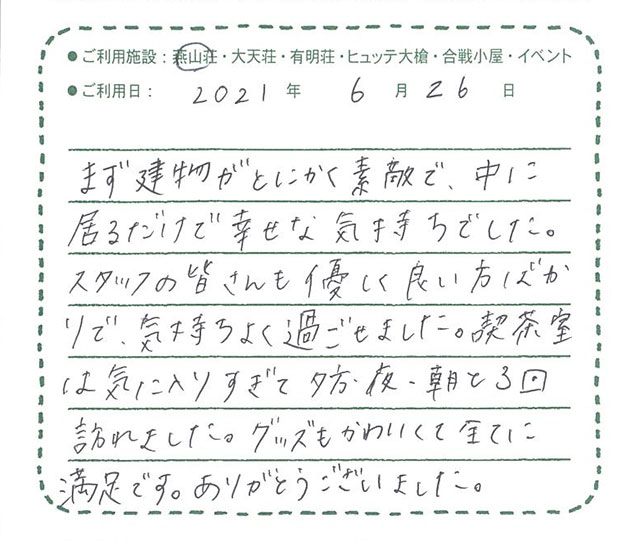 ●ご利用施設：燕山荘・大天荘・有明荘・ヒュッテ大槍・合戦小屋・イベント
●ご利用日： 2021 年 6 月 26 日
まず建物がとにかく素敵で、中に
居るだけで幸せな気持ちでした。
スタッフの皆さんも優しく良い方ばか
りで、気持ちよく過ごせました。喫茶室
は気に入りすぎて夕方・夜・朝と3回
訪れました。グッズもかわいくて全てに
満足です。ありがとうございました。